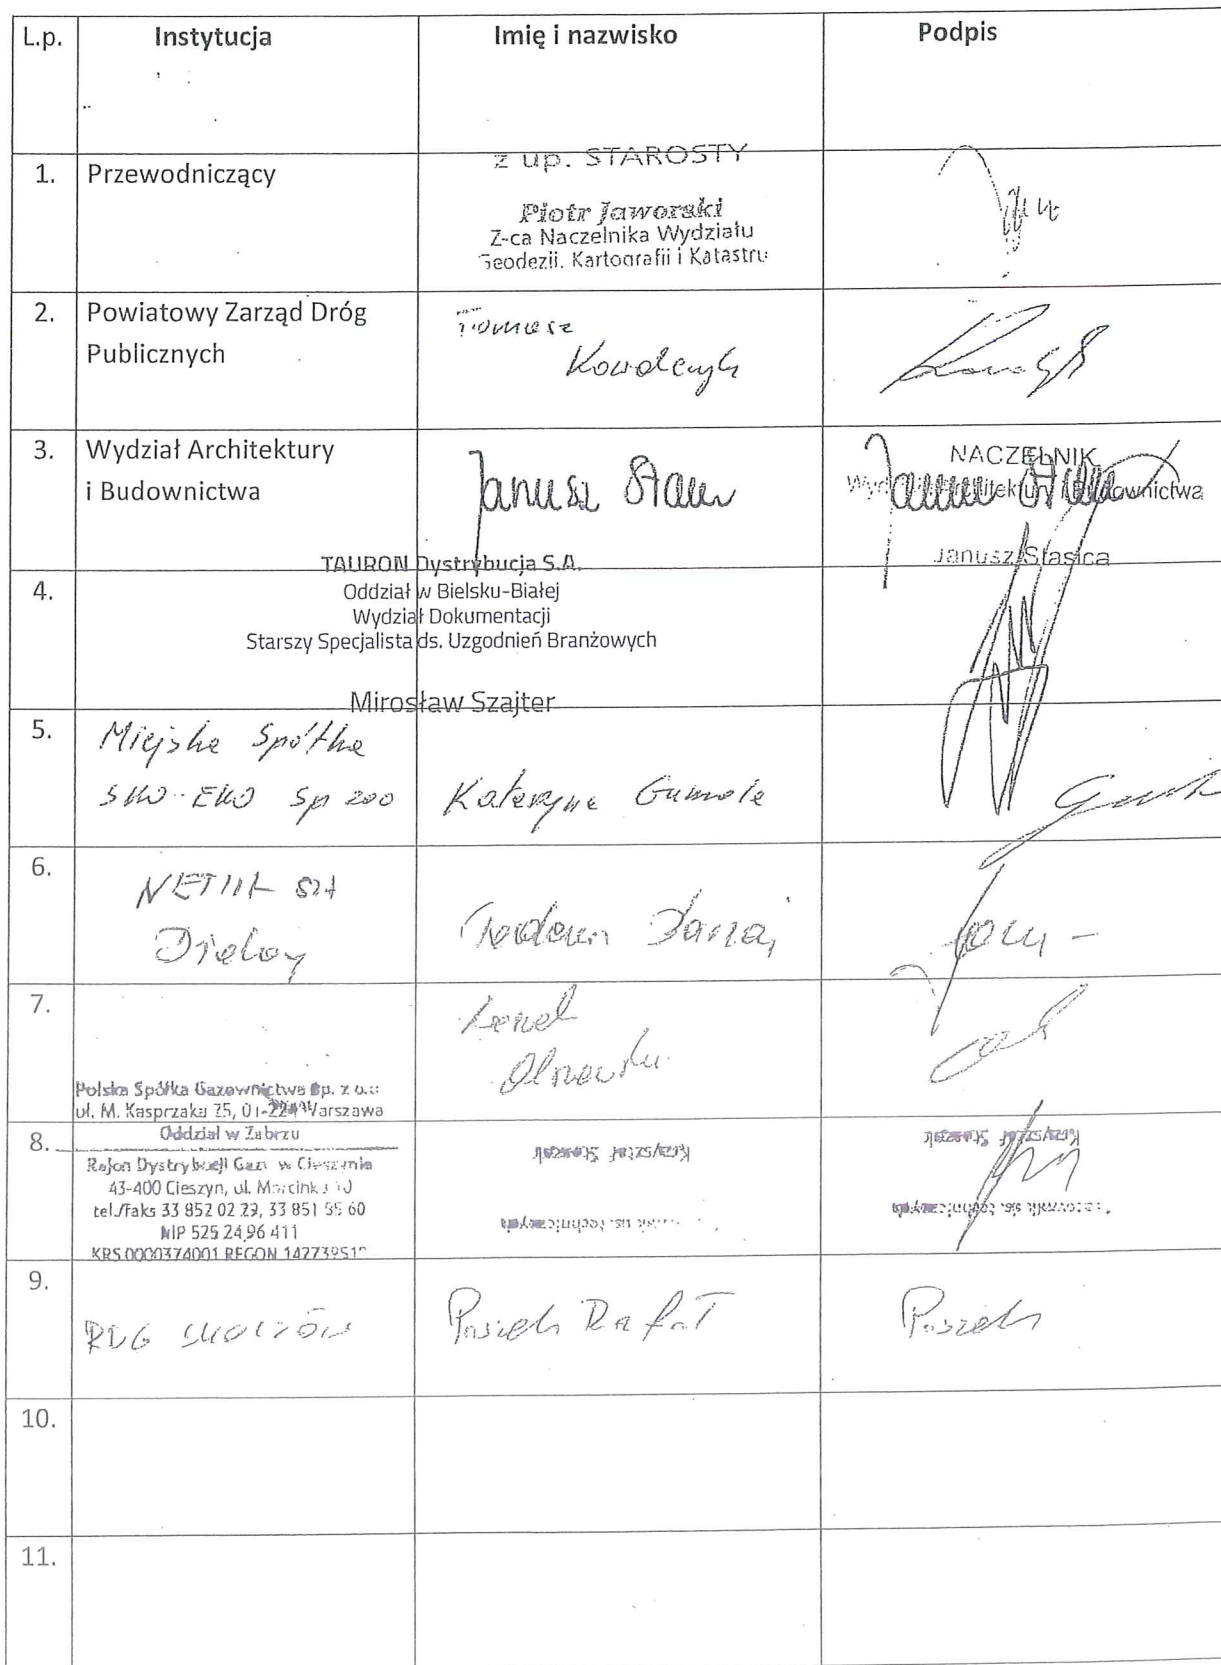 L.p. Instytucja Imię i nazwisko Podpis
z up. STAROSTY
1. Przewodniczący
Piotr Jaworski
Z-ca Naczelnika Wydziału
Geodezii, Kartografii i Katastru
2. Powiatowy Zarząd Dróg
Publicznych
Tomasz
Kowalczyk
3. Wydział Architektury
i Budownictwa
Janusz
NACZELNIK
Wydziału Architektury i Budownictwa
Janusz Stasica
TAURON Dystrybucja S.A.
4. Oddział w Bielsku-Białej
Wydział Dokumentacji
Starszy Specjalista ds. Uzgodnień Branżowych
Mirosław Szajter
5. Miejska Spółka
SKO-EKO Sp zoo
6. NETIA SA
7.
Polska Spółka Gazownictwa Sp. z o.o.
ul. M. Kasprzaka 25, 01-224 Warszawa
8. Oddział w Zabrzu
Rejon Dystrybucji Gazu w Cieszynie
43-400 Cieszyn, ul.
tel./faks 33 852 02 29, 33 851 55 60
NIP 525 24 96 411
KRS 0000374001 REGON
Krzysztof
Krzysztof
9.
RDG SKOCZÓW Pasiek Rafał
10.
11.